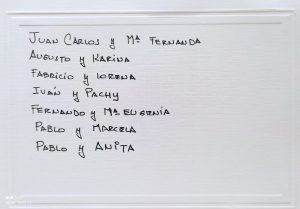 JUAN CARLOS y Mª FERNANDA
AUGUSTO y KARINA
FABRICIO y LORENA
IVÁN y PACHY
FERNANDO y Mª EUGENÍA
PABLO y MARCELA
PABLO y ANITA